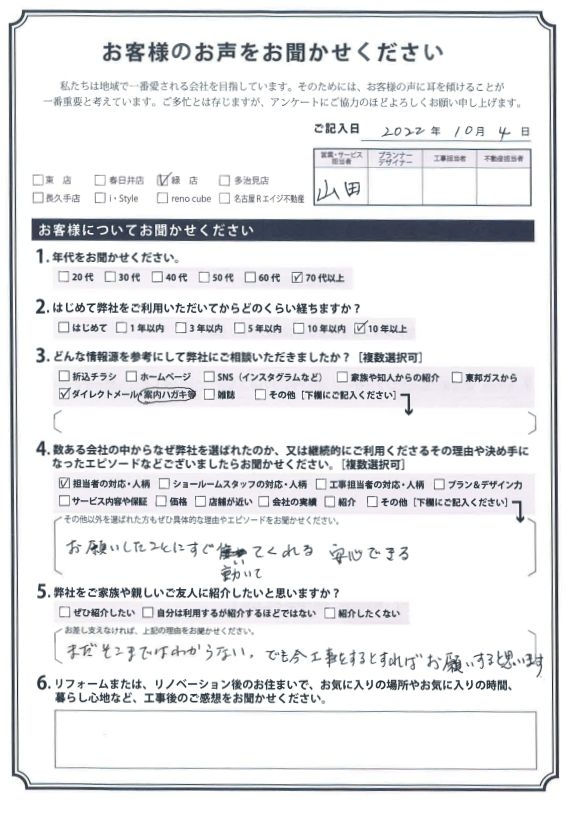 お客様のお声をお聞かせください
私たちは地域で一番愛される会社を目指しています。そのためには、お客様の声に耳を傾けることが
一番重要と考えています。ご多忙とは存じますが、アンケートにご協力のほどよろしくお願い申し上げます。
ご記入日 2022年 10月 4日
営業・サービス担当者 プランナーデザイナー 工事担当者 不動産担当者
山田
□東 店 □春日井店 ☑緑 店 □多治見店
□長久手店 □i・Style □reno cube □名古屋Rエイジ不動産
お客様についてお聞かせください
1. 年代をお聞かせください。
□20代 □30代 □40代 □50代 □60代 ☑70代以上
2. はじめて弊社をご利用いただいてからどのくらい経ちますか？
□はじめて □1年以内 □3年以内 □5年以内 □10年以内 ☑10年以上
3. どんな情報源を参考にして弊社にご相談いただきましたか？［複数選択可］
□折込チラシ □ホームページ □SNS（インスタグラムなど） □家族や知人からの紹介 □東邦ガスから
☑ダイレクトメール・案内ハガキ等 □雑誌 □その他［下欄にご記入ください］
4. 数ある会社の中からなぜ弊社を選ばれたのか、又は継続的にご利用くださるその理由や決め手に
なったエピソードなどございましたらお聞かせください。［複数選択可］
☑担当者の対応・人柄 □ショールームスタッフの対応・人柄 □工事担当者の対応・人柄 □プラン＆デザイン力
□サービス内容や保証 □価格 □店舗が近い □会社の実績 □紹介 □その他［下欄にご記入ください］
その他以外を選ばれた方もぜひ具体的な理由やエピソードをお聞かせください。
お願いしたことにすぐ てくれる 安心できる
動いて
5. 弊社をご家族や親しいご友人に紹介したいと思いますか？
□ぜひ紹介したい □自分は利用するが紹介するほどではない □紹介したくない
お差し支えなければ、上記の理由をお聞かせください。
まだそこまではわからない。でも今工事をするとすればお願いすると思います
6. リフォームまたは、リノベーション後のお住まいで、お気に入りの場所やお気に入りの時間、
暮らし心地など、工事後のご感想をお聞かせください。